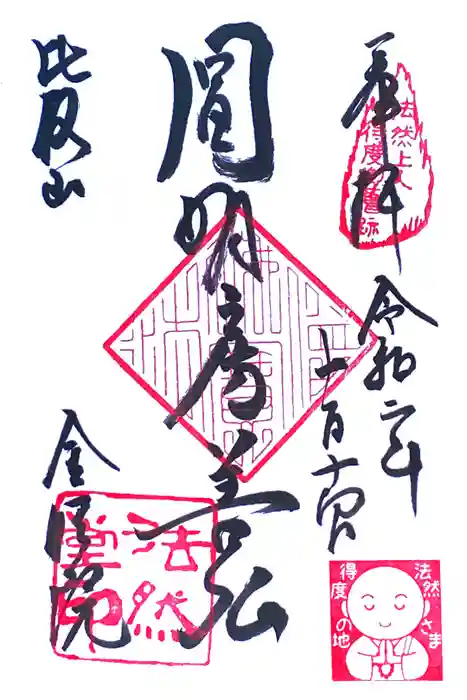 奉拝
法然上人
得度御舊跡
令和二年
十一月十四日
圓明房善弘
比叡山
法然
堂印
法然さま
得度の地